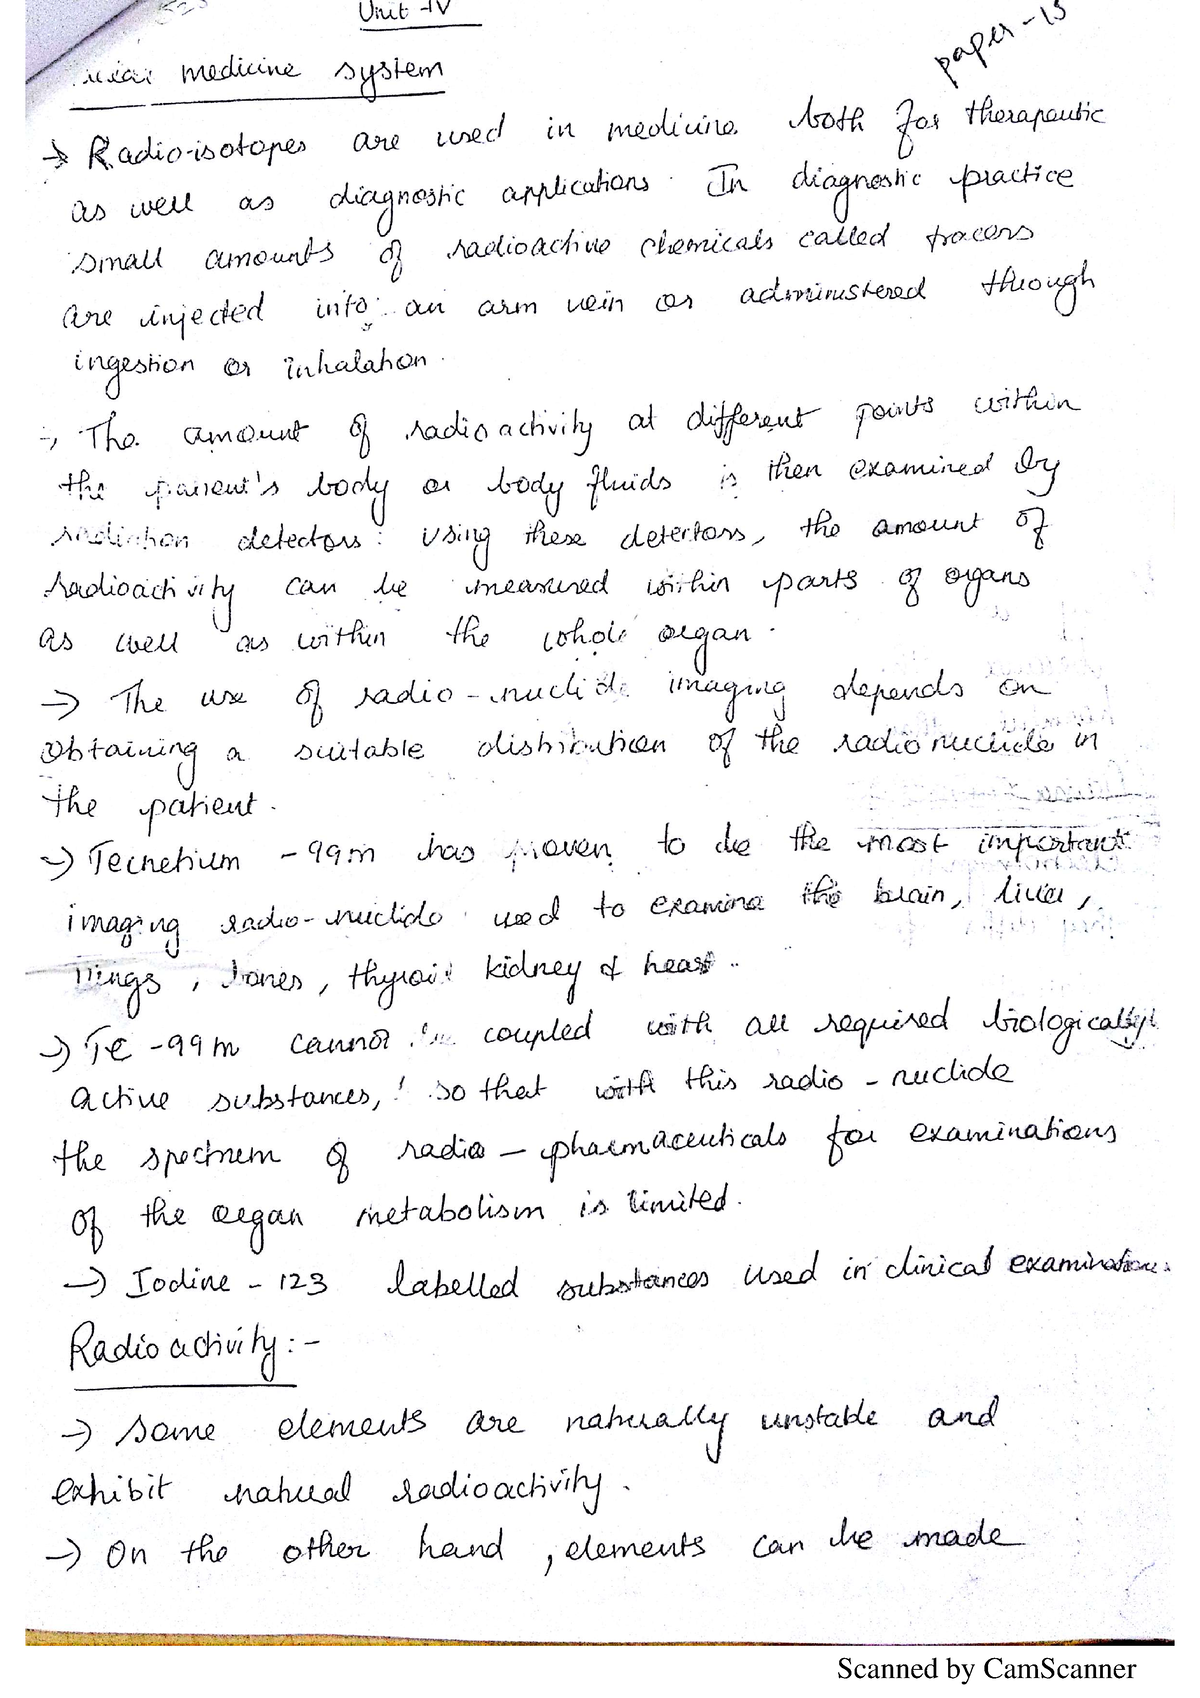 Unit -IV
paper-15
medicine system
→ Radio-isotopes are used in medicine both for therapeutic
as well as diagnostic applications. In diagnostic practice
small amounts of radioactive chemicals called tracers
are injected into an arm vein or administered through
ingestion or inhalation.
→ The amount of radioactivity at different points within
the patient's body or body fluids is then examined by
radiation detectors. Using these detectors, the amount of
radioactivity can be measured within parts of organs
as well as within the whole organ.
→ The use of radio-nuclide imaging depends on
obtaining a suitable distribution of the radionuclide in
the patient.
→ Tecnetium -99m has proven to be the most important
imaging radio-nuclide used to examine the brain, liver,
lungs, bones, thyroid kidney & heart.
→ Te -99m cannot be coupled with all required biologically
active substances, so that with this radio-nuclide
the spectrum of radio-pharmaceuticals for examinations
of the organ metabolism is limited.
→ Iodine -123 labelled substances used in clinical examinations.
Radioactivity:-
→ Some elements are naturally unstable and
exhibit natural radioactivity.
→ On the other hand, elements can be made
Scanned by CamScanner